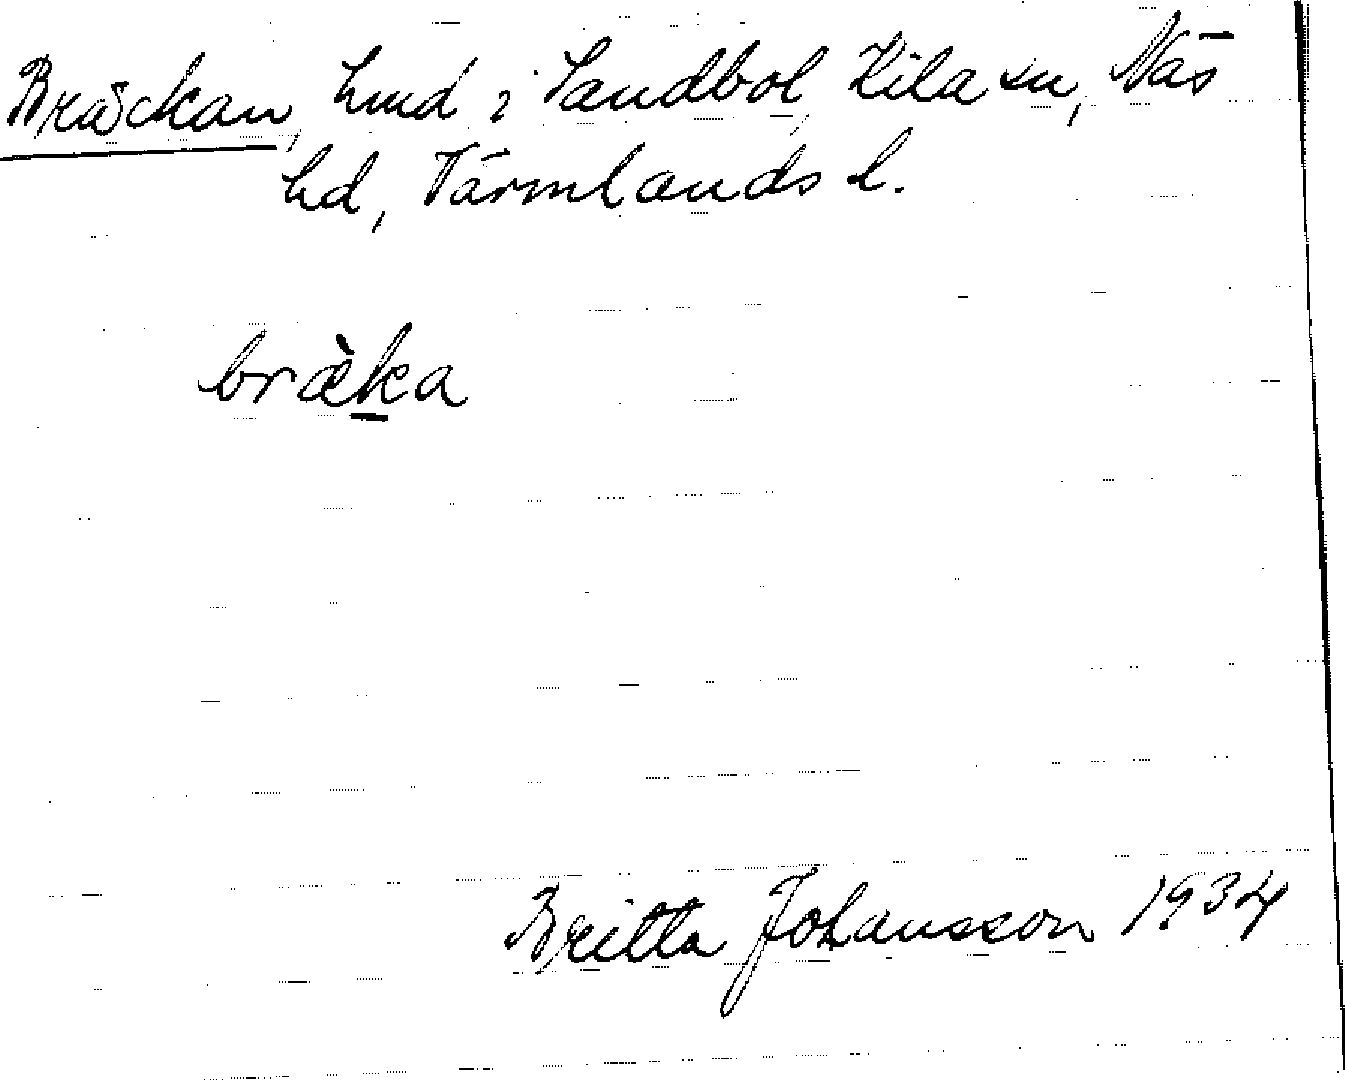 Bräckan, hmd i Sandbol, Kila sn, Näs
hd, Värmlands l.
bræ̀ka
Britta Johansson 1934